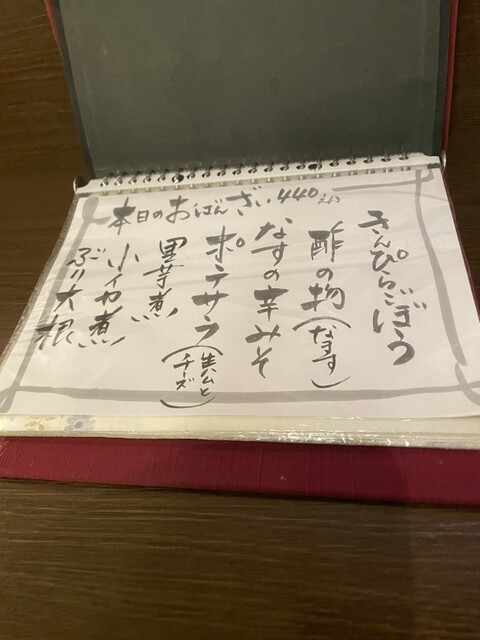 本日のおばんざい 440円
きんぴらごぼう
酢の物(なます)
なすの辛みそ
ポテサラ(生ハムとチーズ)
里芋煮
小イカ煮
ぶり大根